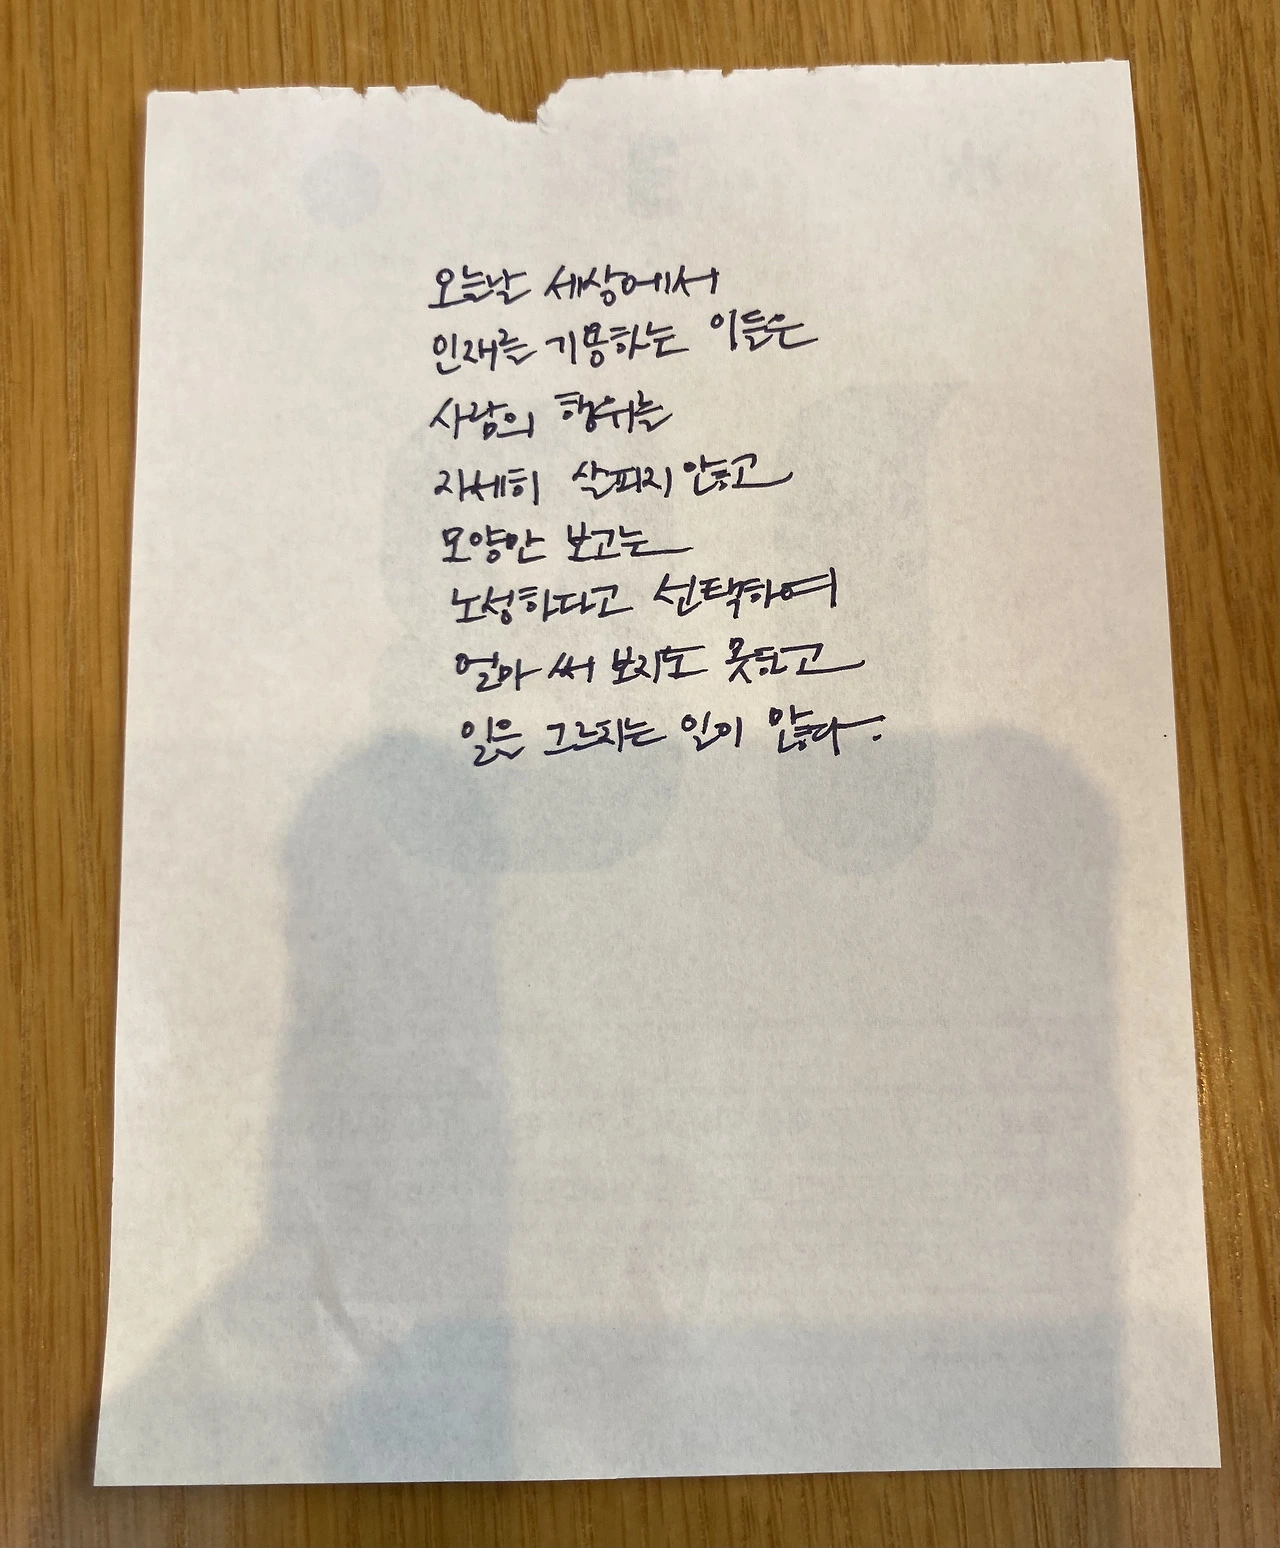 오늘날 세상에서
인재를 기용하는 이들은
사람의 행위는
자세히 살피지 않고
모양만 보고는
노성하다고 선택하여
얼마 써 보지도 못하고
일은 그르치는 일이 많다.